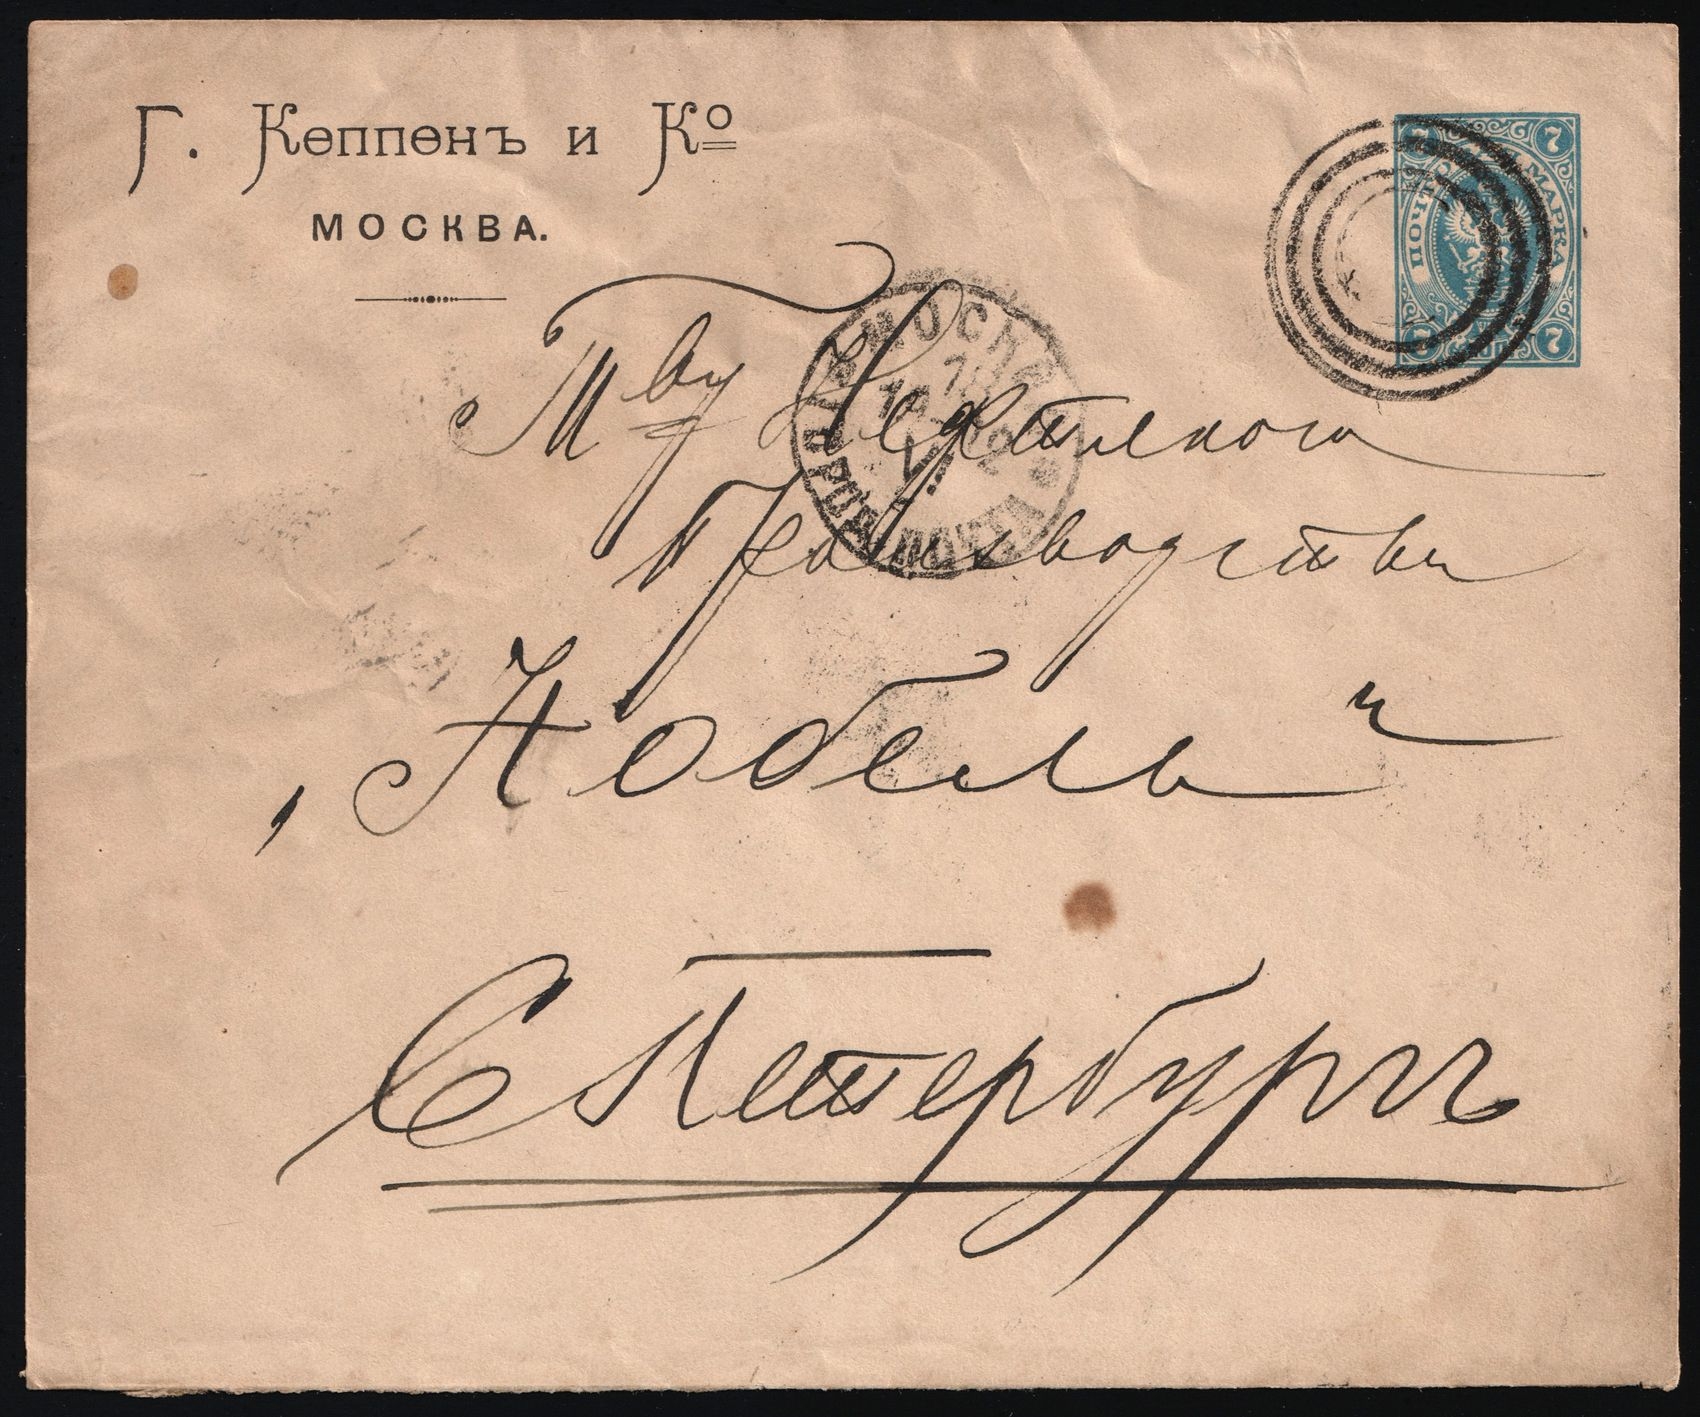 Г. Кеппенъ и Ко
МОСКВА.
ПОЧТОВАЯ МАРКА
7 7
7 КОП. 7
МОСКВА
7
Тву Нефтяного
Производства
„Нобель“
С Петербургъ